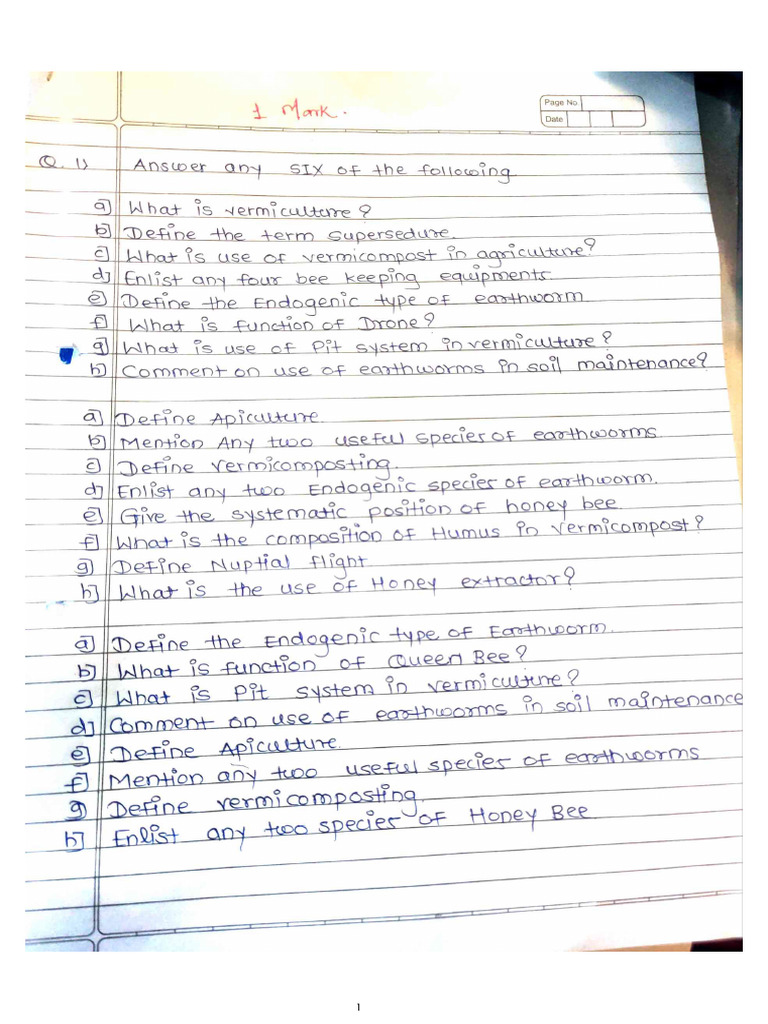 1 Mark.
Page No
Date
Q. 1) Answer any SIX of the following
a) What is vermiculture?
b) Define the term supersedure.
c) What is use of vermicompost in agriculture?
d) Enlist any four bee keeping equipments.
e) Define the Endogenic type of earthworm
f) What is function of Drone?
g) What is use of Pit system in vermiculture?
h) Comment on use of earthworms in soil maintenance?
a) Define Apiculture.
b) Mention Any two useful species of earthworms
c) Define vermicomposting.
d) Enlist any two Endogenic species of earthworm.
e) Give the systematic position of honey bee.
f) What is the composition of Humus in vermicompost?
g) Define Nuptial flight
h) What is the use of Honey extractor?
a) Define the Endogenic type of Earthworm.
b) What is function of Queen Bee?
c) What is Pit system in vermiculture?
d) Comment on use of earthworms in soil maintenance
e) Define Apiculture.
f) Mention any two useful species of earthworms
g) Define vermicomposting.
h) Enlist any two species of Honey Bee
1